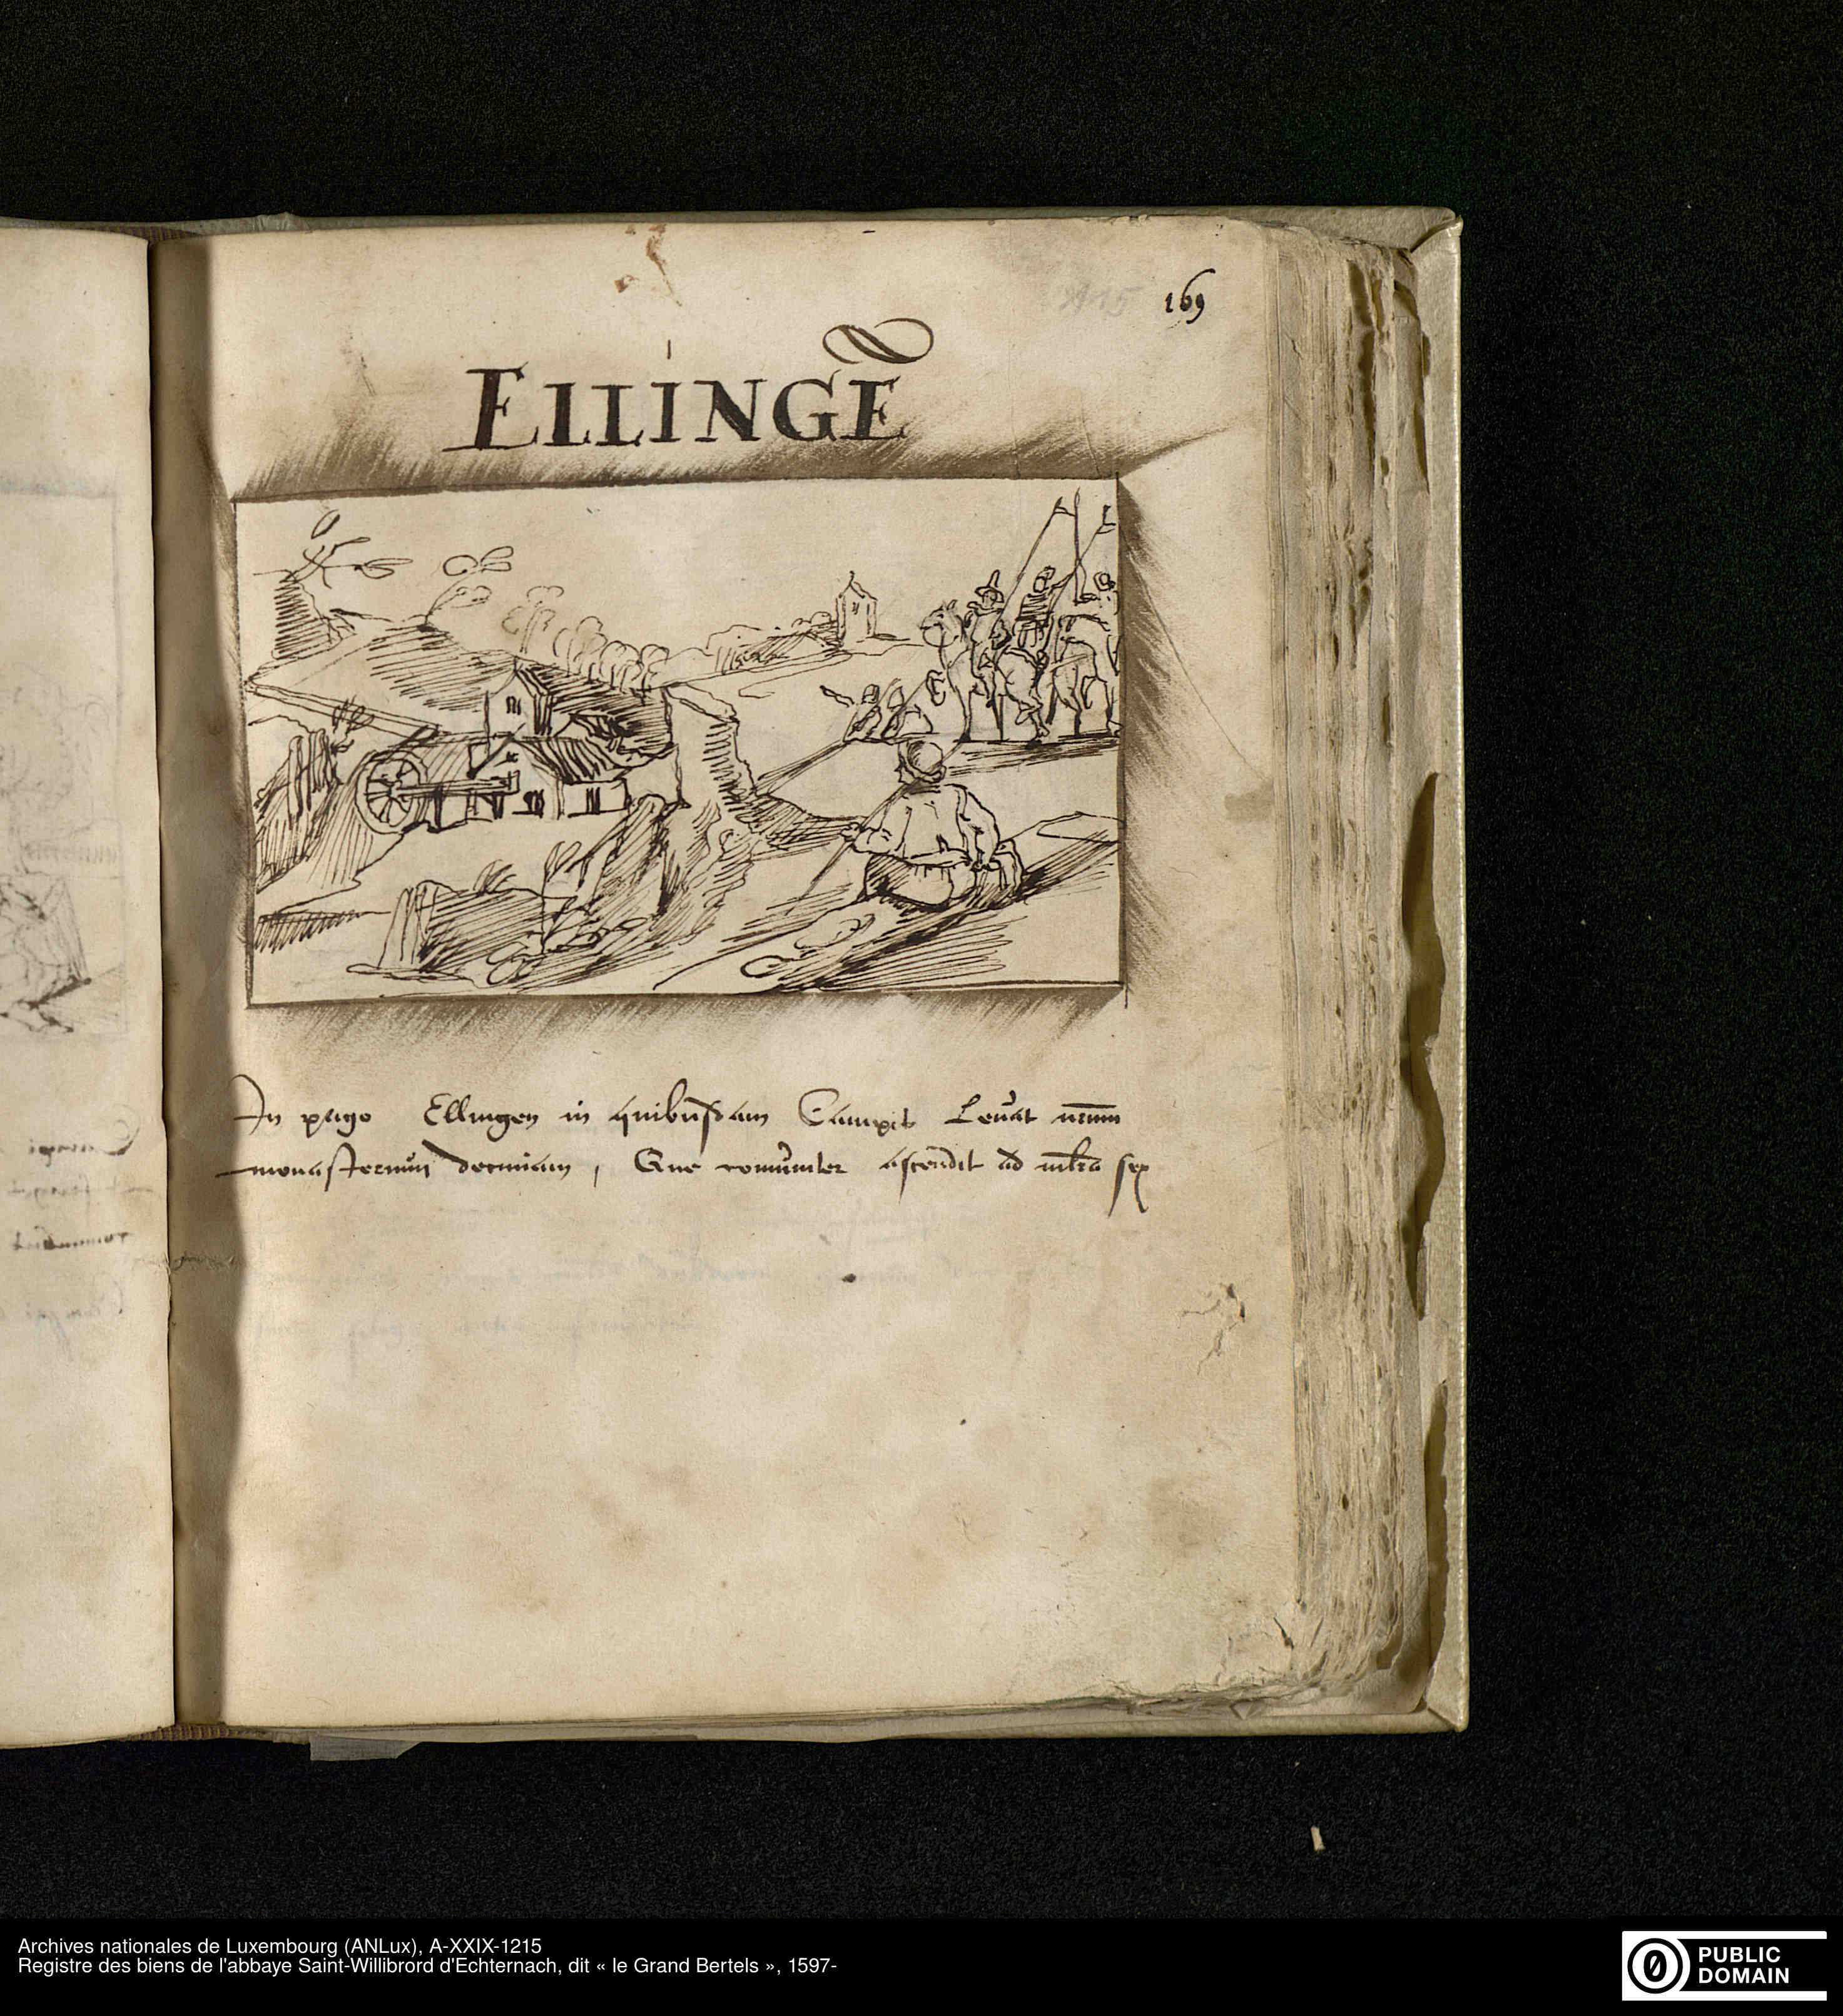 169
ELLINGE
In pago Ellingen in quibusdam Campis Levat nrum
monasterium decimam, Que comuniter ascendit ad mltra sex
Archives nationales de Luxembourg (ANLux), A-XXIX-1215
Registre des biens de l'abbaye Saint-Willibrord d'Echternach, dit « le Grand Bertels », 1597-
PUBLIC
DOMAIN